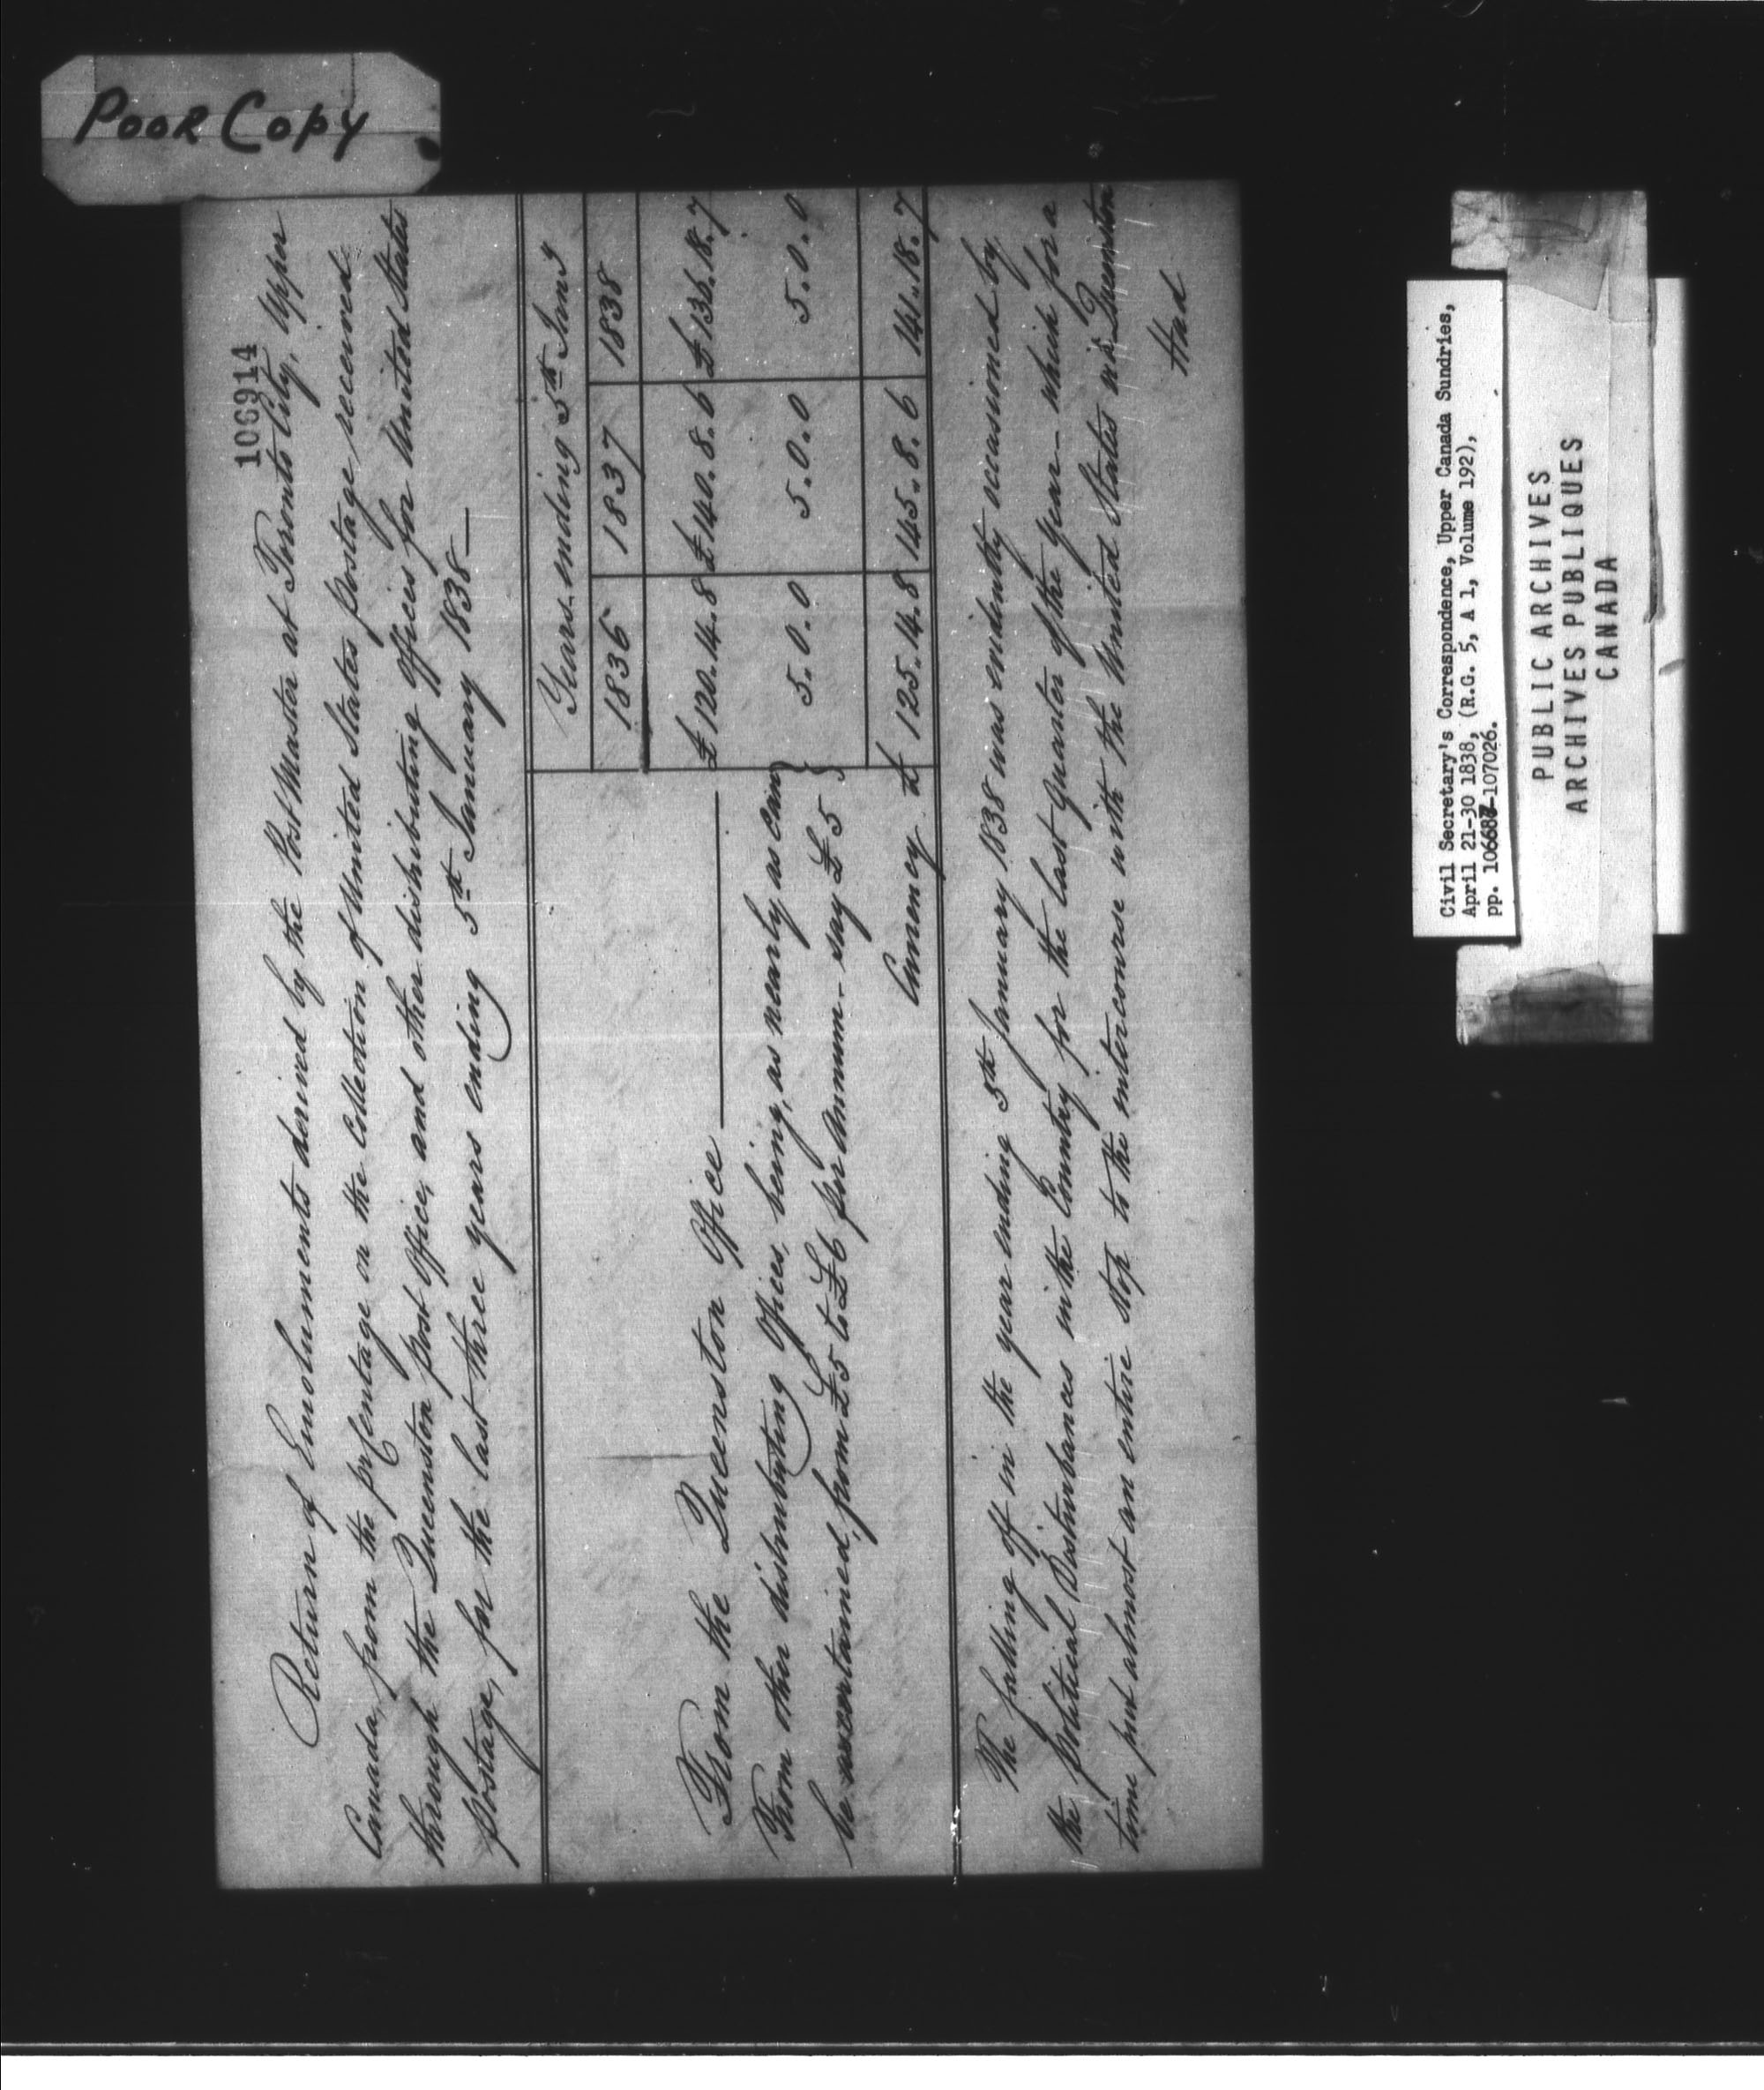 POOR COPY
106914
Return of Emoluments derived by the Post Master at Toronto City, Upper
Canada, from the presentage on the Collection of United States postage received
through the Queenston post office, and other distributing offices for United States
postage, for the last three years ending 5th January 1838 —
Years ending 5th Jany
1836 1837 1838
From the Queenston Office — £ 120.14.8 £ 140.8.6 £ 136.18.7
From other distributing Offices, being, as nearly as can
be assertained, from £5 to £6 per Annum - say £5 } 5.0.0 5.0.0 5.0.0
Currency £ 125.14.8 145.8.6 141.18.7
The falling off in the year ending 5th January 1838 was evidently occasioned by
the political Disturbances in the Country for the last Quarter of the year — which for a
time put almost an entire stop to the intercourse with the United States via Queenston
Had
Civil Secretary's Correspondence, Upper Canada Sundries,
April 21-30 1838, (R.G. 5, A 1, Volume 192),
pp. 106687-107026.
PUBLIC ARCHIVES
ARCHIVES PUBLIQUES
CANADA